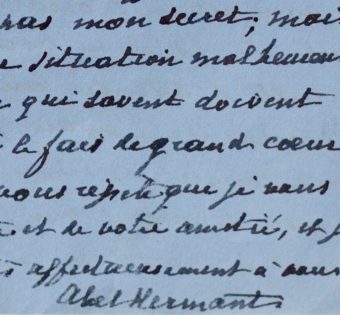 pas mon secret; mais
situation malheureu
qui savent doivent
le fais de grand coeur
vous répète que je vous
et de votre amitié, et j
affectueusement à vous
Abel Hermant